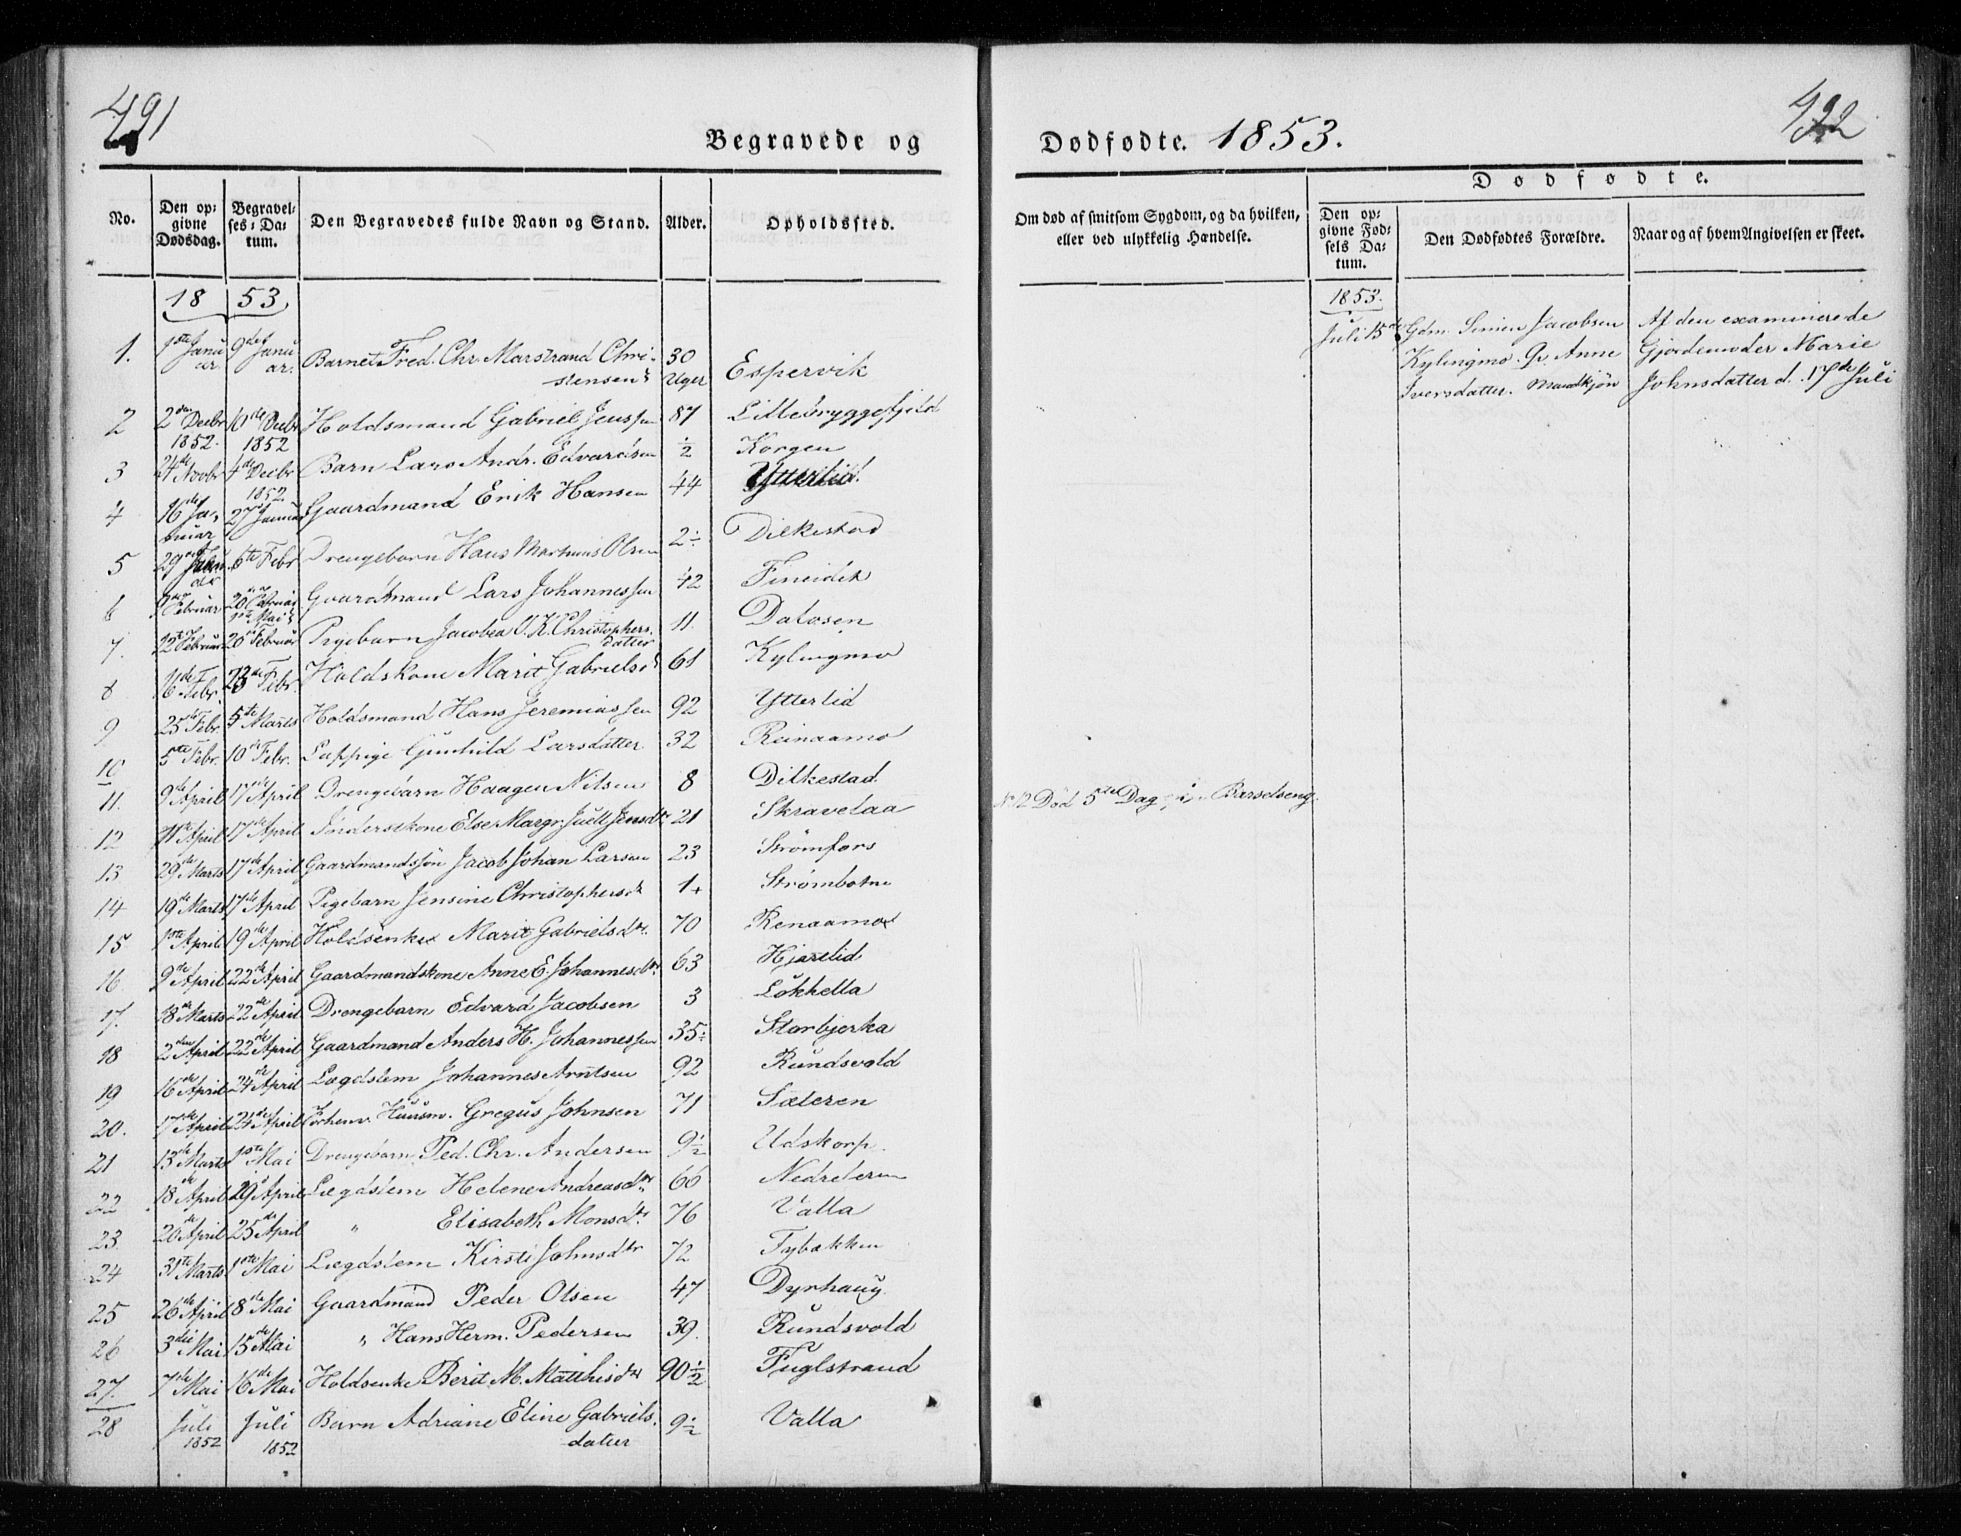 491
Begravede og
No.
Den opgivne Dødsdag.
Begravelses-Datum.
Den Begravedes fulde Navn og Stand.
Alder.
Opholdssted.
18 53
1. 1ste Januar 9de Januar Barnet Fred. Chr. Marstrand Christensen 30 Uger Espervik
2 2den Decbr 1852. 10de Decbr 1852 Holdsmand Gabriel Jenssen 87 Littebryggefjeld
3 24de Novbr 4de Decbr 1852. Barn Lars Andr. Edvardsen ½ Korgen
4 16de Januar 27 Januar Gaardmand Erik Hansen 44 Ytterlid.
5 29 Januar 6te Febr Drengebarn Hans Martinus Olsen 2 Dilkestad
6 Februar 20 Februar Gaardmand Lars Johannessen 42 Fineidet
7. 12te Februar 20de Februar Pigebarn Jacobea Christophersdatter 11. Dalosen
8 16 Febr. 23de Febr. Holdskone Marit Gabrielsd 61 Kylingmo
9 25de Febr. 5te Marts Holdsmand Hans Jeremiassen 92 Ytterlid
10 5te Febr. 10de Febr. Lappige Gunhild Larsdatter 32 Reinaamo
11. 9de April 17de April Drengebarn Haagen Nilsen 8 Dilkestad
12 11te April 17de April Inderstkone Else Margr. Juell Jensdtr 21 Skravelaa
13 29de Marts 17de April Gaardmandssøn Jacob Johan Larsen 23 Strømfors
14 19de Marts 17de April Pigebarn Jensine Christophersd 1 Strømbotne
15 1ste April 19de April Holdsenke Marit Gabrielsdtr. 70 Renaamo
16 9de April 22de April Gaardmandskone Anne E. Johannesdtr. 63 Hjartlid
17. 18de Marts 22de April Drengebarn Edvard Jacobsen 3 Løkhella
18 2den April 22de April Gaardmand Anders H. Johannessen 35 Storbjerka
19 16de April 24de April Lægdslem Johannes Arntsen 92 Rundsvold
20. 17de April 24de April Forhenv. Huusm. Gregus Johnsen 71 Sæteren
21 13de Marts 1ste Mai Drengebarn Ped. Chr. Andersen 9½ Udskorp.
22 18de April 29 April Lægdslem Helene Andreasdtr 66 Nedreleren
23. 20de April 25de April " Elisabeth Monsdtr. 76 Valla
24 31te Marts 1ste Mai Lægdslem Kirsti Johnsdtr 72 Tybækken
25 26de April 8de Mai Gaardmand Peder Olsen 47 Dyrhaug.
26 3die Mai 15de Mai " Hans Herm. Pedersen 39. Rundsvold
27. 7de Mai 16de Mai Holdsenke Berit M. Matthisdtr 90½ Fuglstrand
28 Juli 1852 Juli 1852 Barn Adriane Eline Gabrielsdatter 9½ Valla
Dødfødte. 1853.
Om død af smitsom Sygdom, og da hvilken, eller ved ulykkelig Hændelse.
Dødfødte.
Den opgivne Fødsels Datum.
Den Dødfødtes Forældre.
Naar og af hvem Angivelsen er skeet.
1853.
Juli 15de
Gdm. Simen Jacobsen
Kylingmo. Anne
Iversdatter. Mandkjøn
Af den examinerede
Gjordemoder Marie
Johnsdatter d. 17de Juli
No 12 Død 5te Dag i Barselseng.